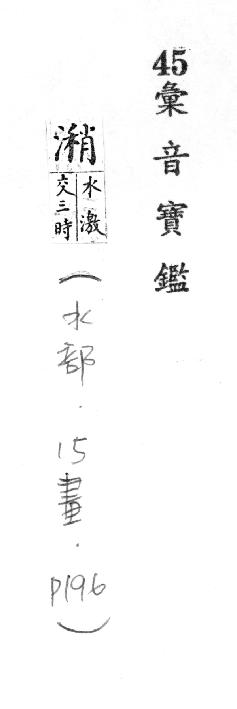 45彙音寶鑑
潲
水激
交三時
（水部．15畫．P196）